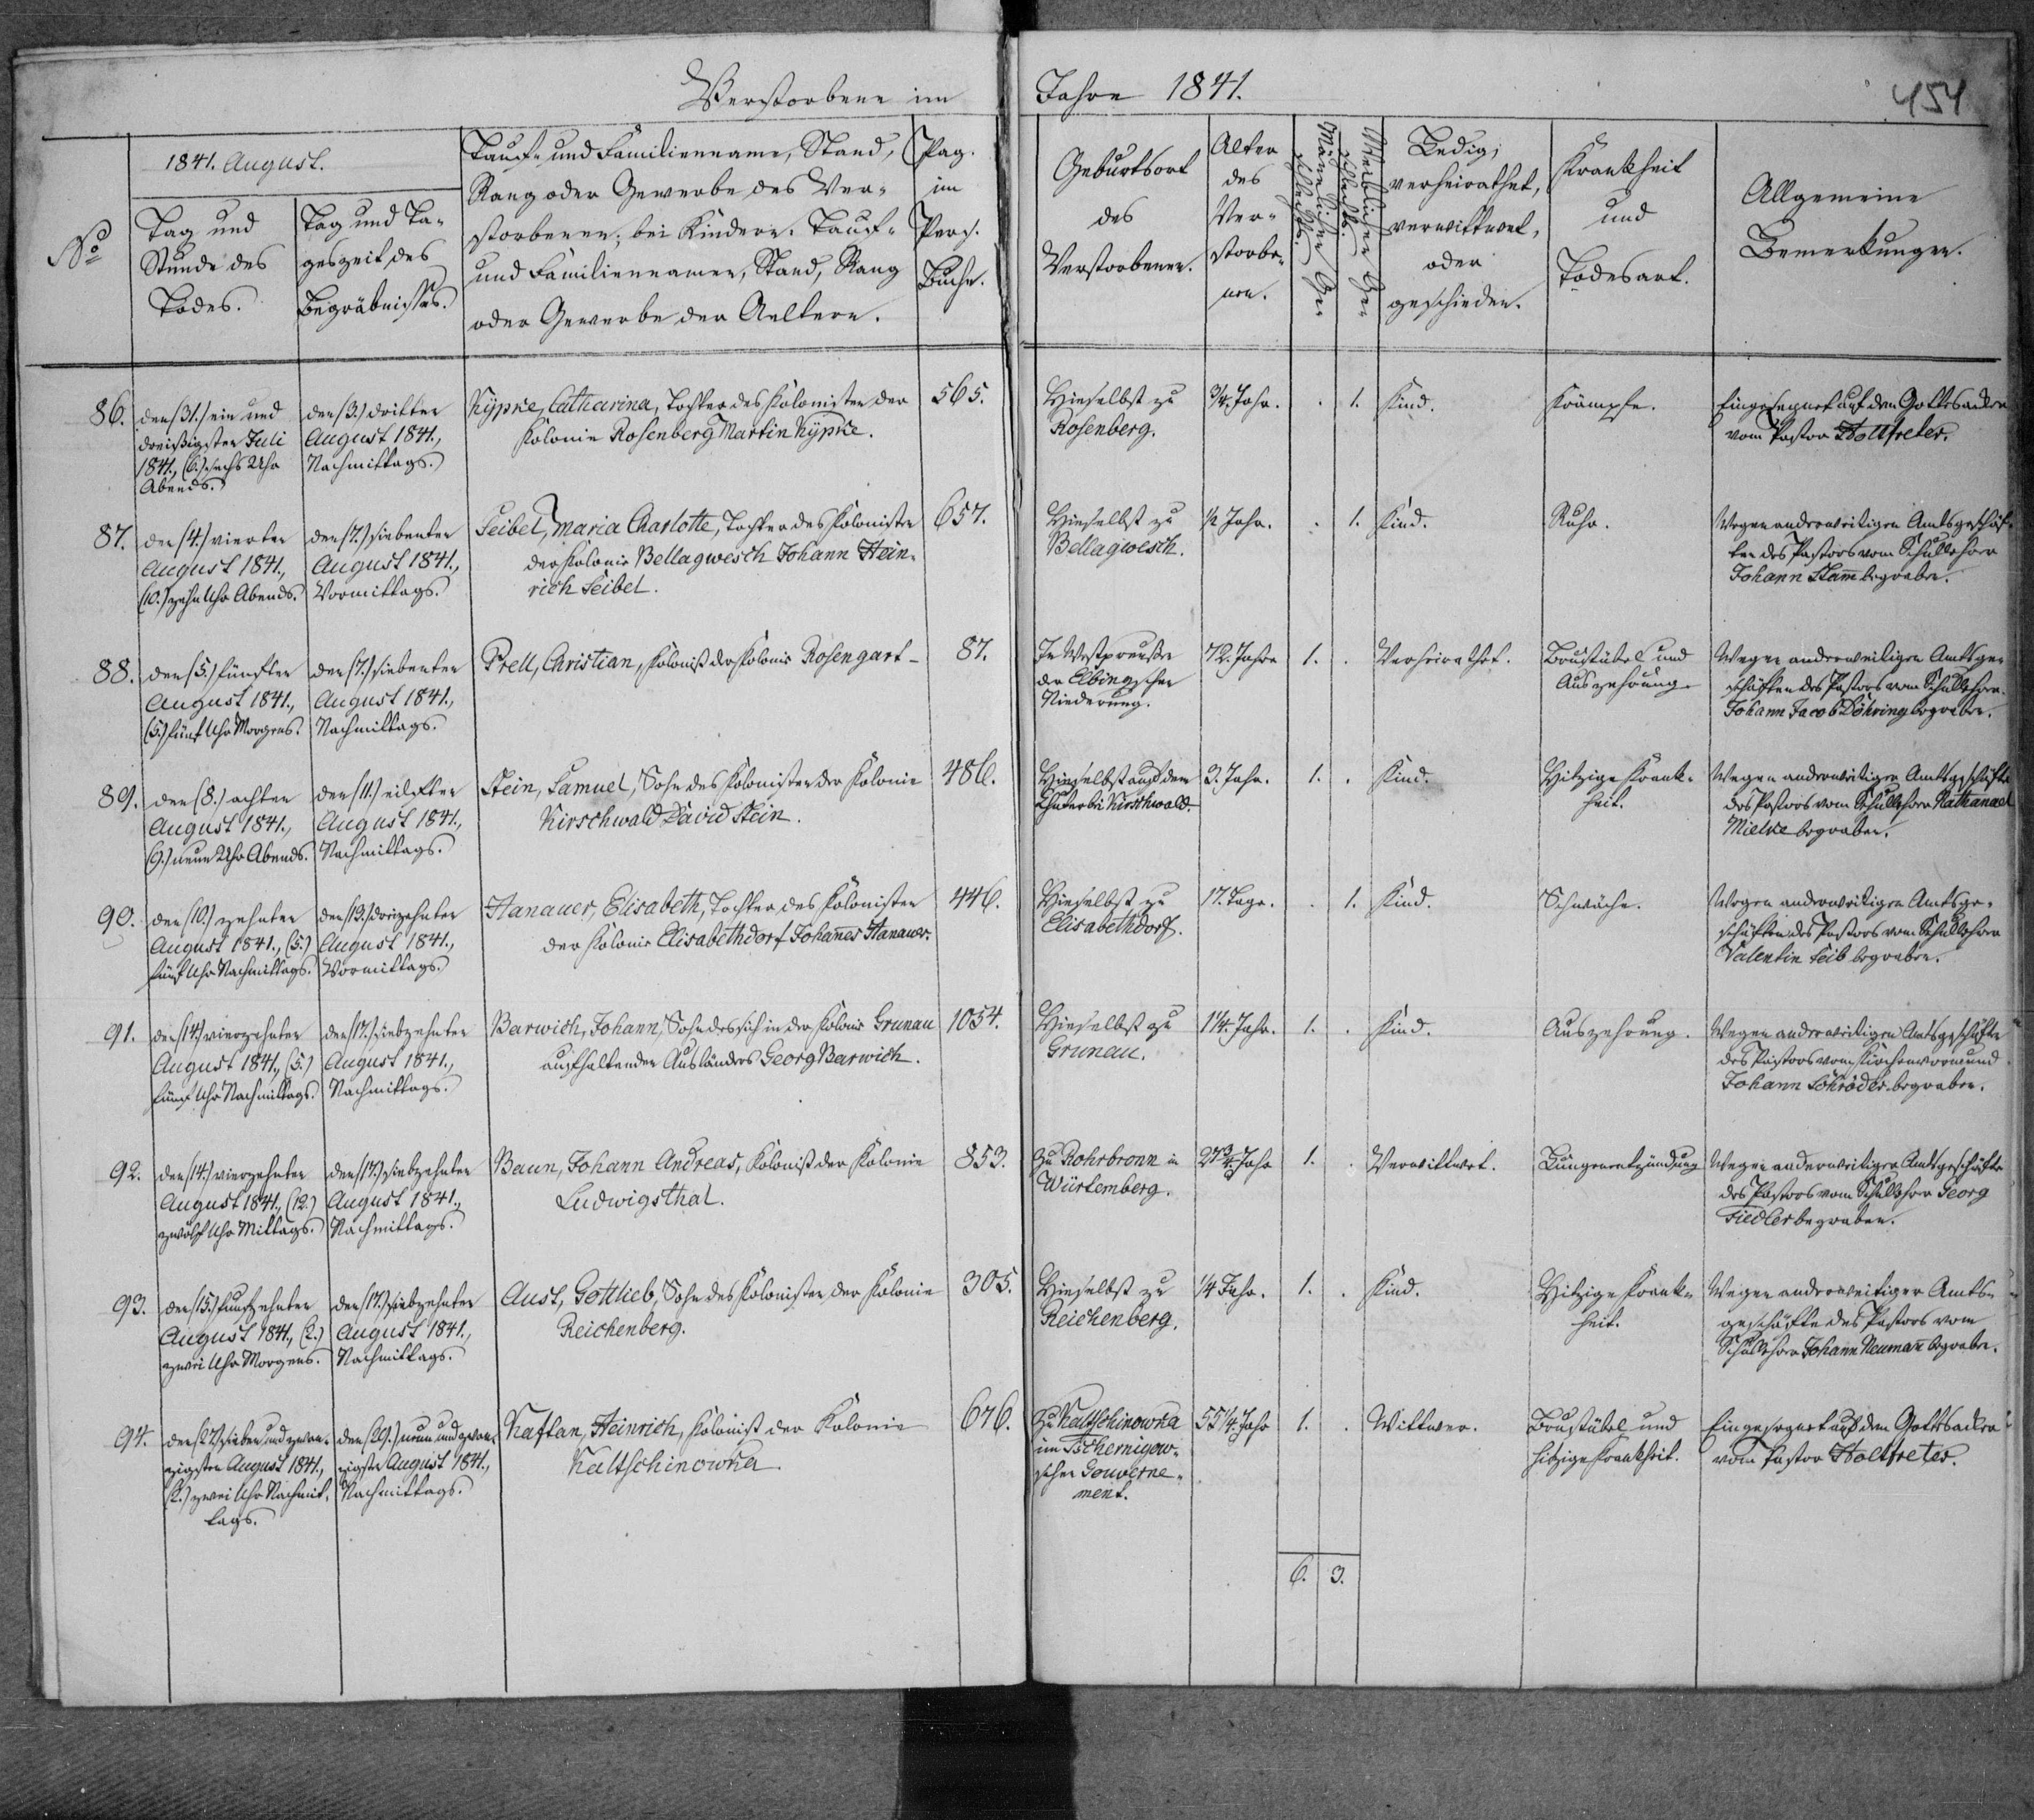 Verstorbene im Jahre 1841.
454
No
1841. August.
Tag und
Stunde des
Todes.
Tag und Ta-
geszeit des
Begräbnisses.
Tauf- und Familienname, Stand,
Rang oder Gewerbe des Ver-
storbenen; bei Kindern: Tauf-
und Familiennamen, Stand, Rang
oder Gewerbe der Aeltern.
Pag.
im
Pers.
Buche.
Geburtsort
des
Verstorbenen.
Alter
des
Ver-
storbe-
nen.
Männlichen Ge-
schlechts.
Weiblichen Ge-
schlechts.
Ledig,
verheirathet,
verwittwet,
oder
geschieden.
Krankheit
und
Todesart.
Allgemeine
Bemerkungen.
86.
den (31.) ein und
dreißigsten Juli
1841., (6.) sechs Uhr
Abends.
den (3.) dritten
August 1841.,
Nachmittags.
Kypke, Catharina, Tochter des Kolonisten der
Kolonie Rosenberg Martin Kypke.
565.
Hieselbst zu
Rosenberg.
3/4. Jahr.
. 1.
Kind.
Krämpfe.
Eingesegnet auf dem Gottesacker
vom Pastor Holtfreter.
87.
den (4.) vierten
August 1841.,
(10.) zehn Uhr Abends.
den (7.) siebenten
August 1841.,
Vormittags.
Seibel, Maria Charlotte, Tochter des Koloniste
der Kolonie Bellagwesch Johann Hein-
rich Seibel.
657.
Hieselbst zu
Bellagwesch.
1/2 Jahr.
. 1.
Kind.
Ruhr.
Wegen anderweitigen Amtsgeschäf-
ten des Pastors vom Schullehrer
Johann Stam̅ begraben.
88.
den (5.) fünften
August 1841.,
(5.) fünf Uhr Morgens.
den (7.) siebenten
August 1841.,
Nachmittags.
Prell, Christian, Kolonist der Kolonie Rosengart-
87.
In Westpreußen
der Elbingschen
Niederung.
72. Jahre
1. .
Verheirathet.
Brustübel und
Auszehrung.
Wegen anderweitigen Amtsge-
schäften des Pastors vom Schullehrer
Johann Jacob Döhring begraben.
89.
den (8.) achten
August 1841.,
(9.) neun Uhr Abends.
den (11.) eilften
August 1841.,
Nachmittags.
Stein, Samuel, Sohn des Kolonisten der Kolonie
Kirschwald David Stein.
486.
Hieselbst auf dem
Chutor bei Kirschwald.
3. Jahr.
1. .
Kind.
Hitzige Krank-
heit.
Wegen anderweitigen Amtsgeschäfte
des Pastors vom Schullehrer Nathanael
Mielke begraben.
90.
den (10.) zehnten
August 1841., (5.)
fünf Uhr Nachmittags.
den (13.) dreizehnten
August 1841.,
Vormittags.
Hanauer, Elisabeth, Tochter des Kolonisten
der Kolonie Elisabethdorf Johan̅es Hanauer.
446.
Hieselbst zu
Elisabethdorf.
17. Tage.
. 1.
Kind.
Schwäche.
Wegen anderweitigen Amtsge-
schäften des Pastors vom Schullehrer
Valentin Leib begraben.
91.
den (14.) vierzehnten
August 1841., (5.)
fünf Uhr Nachmittags.
den (17.) siebzehnten
August 1841.,
Nachmittags.
Barwich, Johann, Sohn des sich in der Kolonie Grunau
aufhaltenden Ausländers Georg Barwich.
1054.
Hieselbst zu
Grunau.
1 1/4. Jahr.
1. .
Kind.
Auszehrung.
Wegen anderweitigen Amtsgeschäfte
des Pastors vom Kirchenvormund
Johann Schröder begraben.
92.
den (14.) vierzehnten
August 1841., (12.)
zwölf Uhr Mittags.
den (17.) siebzehnten
August 1841.,
Nachmittags.
Baun, Johann Andreas, Kolonist der Kolonie
Ludwigsthal.
853.
Zu Rohrbronn in
Würtemberg.
27 3/4. Jahr
1. .
Verwittwet.
Lungenentzündung
Wegen anderweitigen Amtsgeschäfte
des Pastors vom Schullehrer Georg
Fiedler begraben.
93.
den (15.) fünfzehnten
August 1841., (2.)
zwei Uhr Morgens.
den (17.) siebzehnten
August 1841.,
Nachmittags.
Aust, Gottlieb, Sohn des Kolonisten der Kolonie
Reichenberg.
305.
Hieselbst zu
Reichenberg.
1/4 Jahr.
1. .
Kind.
Hitzige Krank-
heit.
Wegen anderweitiger Amts-
geschäfte des Pastors vom
Schullehrer Johann Neuman̅ begraben.
94.
den (27.) sieben und zwan-
zigsten August 1841.,
(2.) zwei Uhr Nachmit-
tags.
den (29.) neun und zwan-
zigsten August 1841.,
Nachmittags.
Kaftan, Heinrich, Kolonist der Kolonie
Kaltschinowka.
676.
Zu Kaltschinowka
im Tschernigow-
schen Gouverne-
ment.
55 1/4. Jahr
1. .
Wittwer.
Brustübel und
hitzige Krankheit.
Eingesegnet auf dem Gottesacker
vom Pastor Holtfreter.
6. 3.